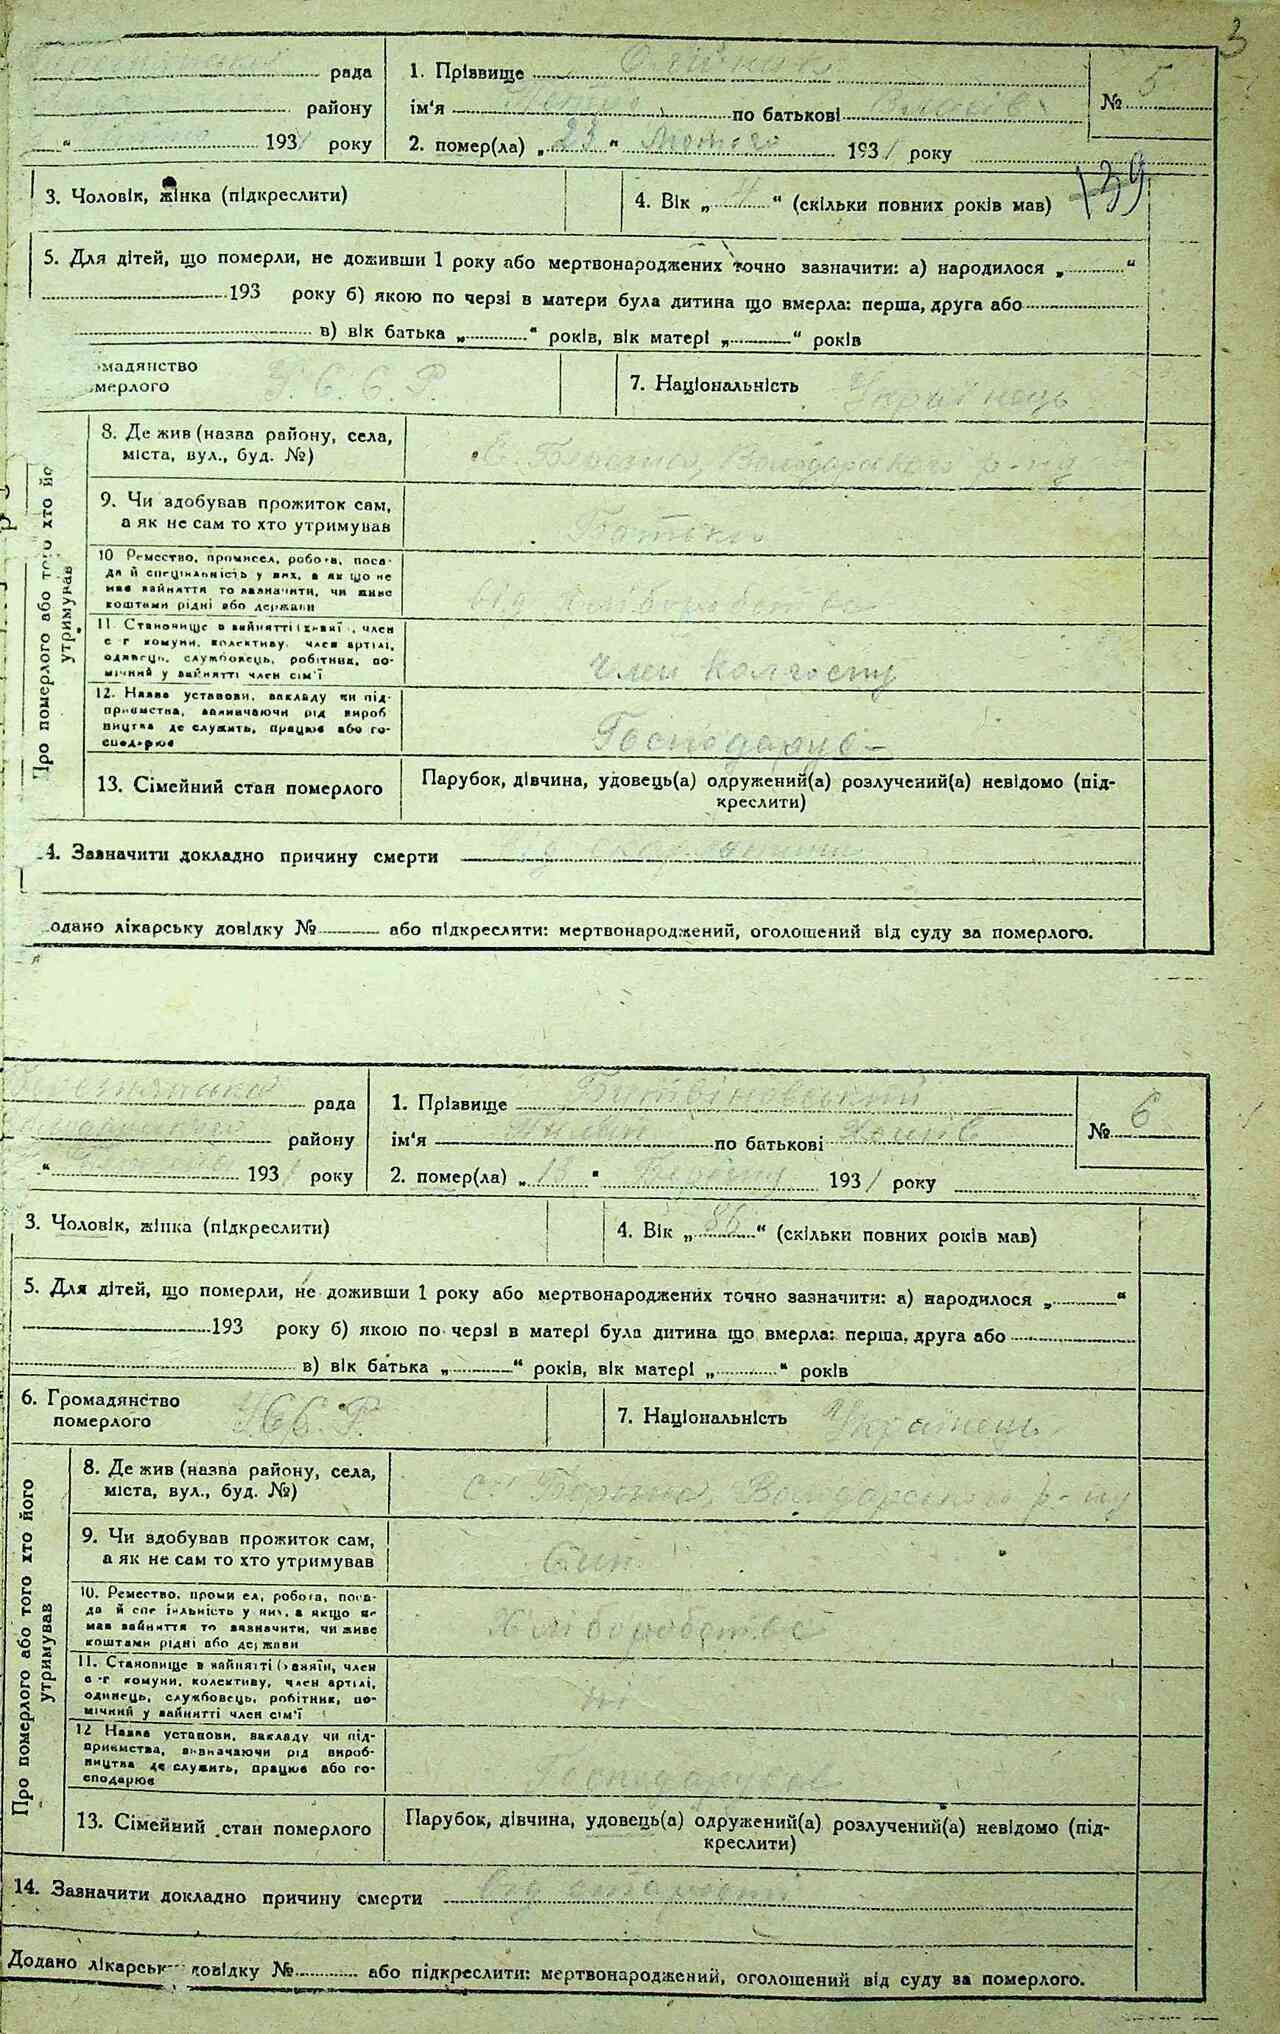 3
рада
району
193 року
1. Прізвище
ім'я Петро по батькові
2. помер(ла) „23“ Лютого 1931 року
№ 5
39
3. Чоловік, жінка (підкреслити)
4. Вік „ “ (скільки повних років мав)
5. Для дітей, що померли, не доживши 1 року або мертвонароджених точно зазначити: а) народилося „ “
193 року б) якою по черзі в матери була дитина що вмерла: перша, друга або
в) вік батька „ “ років, вік матері „ “ років
мадянство
мерлого
У.С.С.Р.
7. Національність Українець
8. Де жив (назва району, села,
міста, вул., буд. №)
Володарського р-ну
9. Чи здобував прожиток сам,
а як не сам то хто утримував
Батьки
10 Ремество, промисел, робота, поса-
да й спеціальність у них, а як що не
мав зайняття то зазначити, чи живе
коштами рідні або держави
від хліборобства
11. Становище в зайнятті (хазяї, член
с г комуни, колективу, член артілі,
одинець, службовець, робітник, по-
мічний у зайнятті член сім'ї
член колгоспу
12. Назва установи, закладу чи під-
приємства, зазначаючи рід вироб
ництва де служить, працює або го-
сподарює
Господарує
Про померлого або того хто йо
утримував
13. Сімейний стан померлого
Парубок, дівчина, удовець(а) одружений(а) розлучений(а) невідомо (під-
креслити)
4. Зазначити докладно причину смерти від
одано лікарську довідку № або підкреслити: мертвонароджений, оголошений від суду за померлого.
Березнянська рада
району
193 року
1. Прізвище Бутвіновський
ім'я по батькові
2. помер(ла) „13“ 1931 року
№ 6
3. Чоловік, жінка (підкреслити)
4. Вік „86“ (скільки повних років мав)
5. Для дітей, що померли, не доживши 1 року або мертвонароджених точно зазначити: а) народилося „ “
193 року б) якою по черзі в матері була дитина що вмерла: перша, друга або
в) вік батька „ “ років, вік матері „ “ років
6. Громадянство
померлого
УССР.
7. Національність Українець
8. Де жив (назва району, села,
міста, вул., буд. №)
Володарського р-ну
9. Чи здобував прожиток сам,
а як не сам то хто утримував
Син
10. Ремество, проми ел, робота, поса-
да й спе іяльність у них, а якщо не
мав зайняття то зазначити, чи живе
коштами рідні або держави
Хліборобство
11. Становище в зайнятті (хазяїн, член
с-г комуни, колективу, член артілі,
одинець, службовець, робітник, по-
мічний у зайнятті член сім'ї
12 Назва установи, закладу чи під-
приємства, визначаючи рід вироб-
ництва де служить, працює або го-
сподарює
Господарував
Про померлого або того хто його
утримував
13. Сімейний стан померлого
Парубок, дівчина, удовець(а) одружений(а) розлучений(а) невідомо (під-
креслити)
14. Зазначити докладно причину смерти від старості
Додано лікарськ довідку № або підкреслити: мертвонароджений, оголошений від суду за померлого.